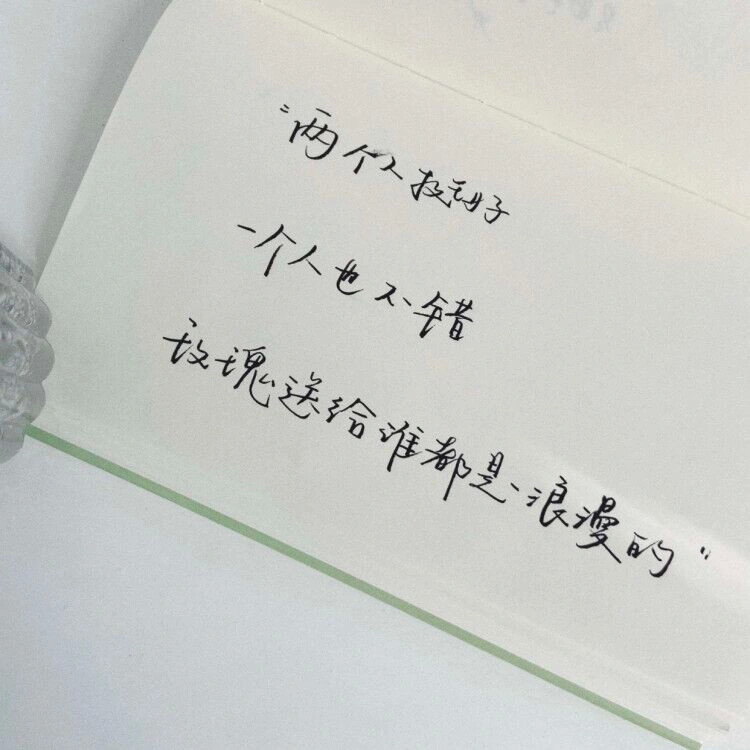 "两个人挺好
一个人也不错
玫瑰送给谁都是浪漫的"